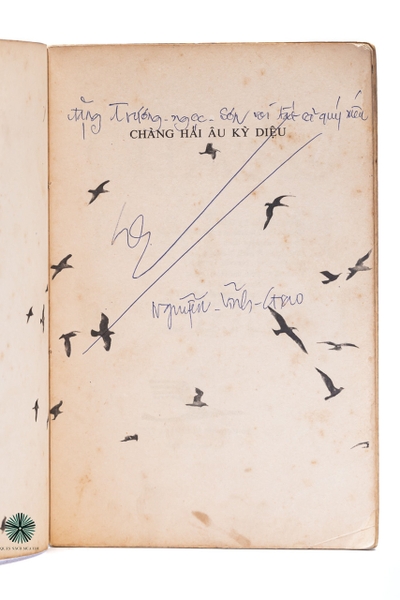 tặng Trương-ngọc-Sơn với tất cả quý mến
CHÀNG HẢI ÂU KỲ DIỆU
Nguyễn-Vĩnh-